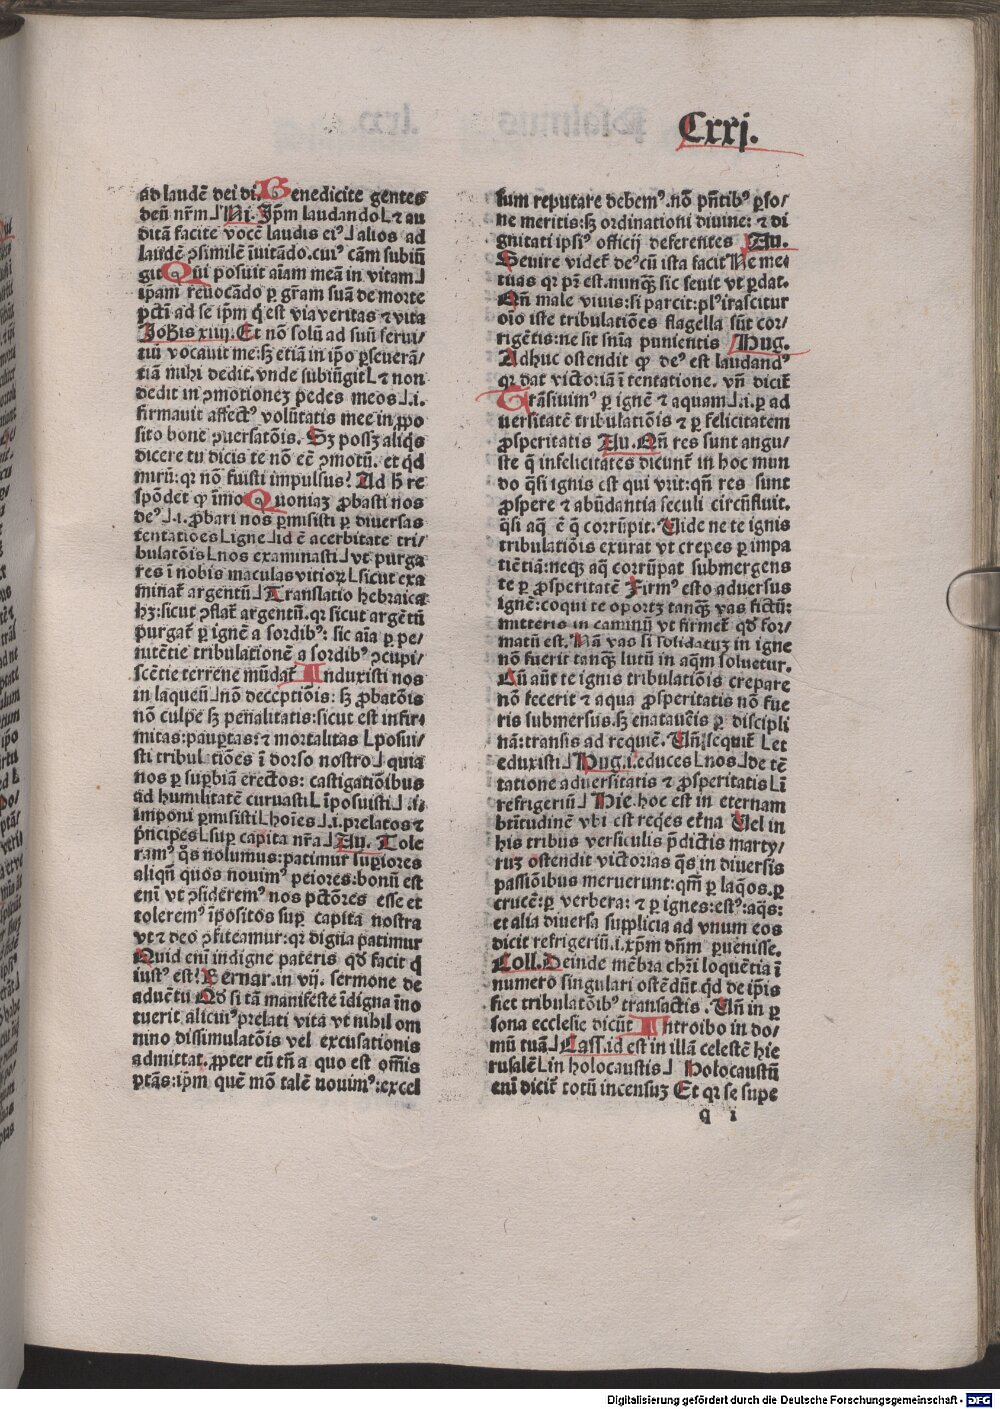 Cxxj.
ad laudē dei di. Benedicite gentes
deū nr̄m⅃ Ni. Ip̄m laudandoL ⁊ au
ditā facite vocē laudis eiꝰ⅃ alios ad
laudē ꝯsimilē īuitādo. cuiꝰ cām subiū
git Qui posuit aīam meā in vitam⅃
ip̄am reuocādo ꝑ gr̄am suā de morte
pctī ad se ip̄m q̇ est via veritas ⁊ vita
Johīs xiiij. Et nō solū ad suū serui/
tiū vocauit me: sꝫ etiā in ip̄o ꝑseuerā/
tiā mihi dedit. vnde subiūgitL ⁊ non
dedit in ꝯmotionez pedes meos⅃.i.
firmauit affectꝰ volūtatis mee in ꝓpo
sito bone ꝯuersatōis. Sꝫ possꝫ aliq̄s
dicere tu dicis te nō eē ꝯmotū. et qd̄
mirū: qꝛ nō fuisti impulsus? Ad h̄ re
spōdet ꝙ īmo Quoniaꝫ ꝓbasti nos
deꝰ⅃.i. ꝓbari nos ꝑmisisti ꝑ diuersas
tentatōes L igne⅃ id ē acerbitate tri/
bulatōisL nos examinasti⅃ vt purga
res ī nobis maculas vitioꝝL sicut exa
minat̄ argentū⅃ Translatio hebraica
hꝫ: sicut ꝯflat̄ argentū. qꝛ sicut argētū
purgat̄ ꝑ ignē a sordibꝰ: sic aīa ꝑ pe/
nitētie tribulationē a sordibꝰ ꝯcupi/
scētie terrene mūdat̄ Induxisti nos
in laqueū⅃ nō deceptiōis: sꝫ ꝓbatōis
nō culpe sꝫ penalitatis: sicut est infir/
mitas: pauꝑtas: ⁊ mortalitas L posui/
sti tribulatiōes ī dorso nostro⅃ quia
nos ꝑ suꝑbiā erectos: castigatiōibus
ad humilitatē curuastiL īposuisti⅃.i.
imponi ꝑmisistiL hoīes⅃.i. prelatos ⁊
pͥncipesL suꝑ capita nr̄a⅃ Au. Tole
ramꝰ q̄s nolumus: patimur suꝑiores
aliqn̄ quos nouimꝰ peiores: bonū est
enī vt ꝯsideremꝰ nos pctōres esse et
toleremꝰ īpositos suꝑ capita nostra
vt ⁊ deo ꝯfiteamur: qꝛ digna patimur
Quid enī indigne pateris qd̄ facit q̇
iustꝰ est? Bernar. in vij. sermone de
aduētu Qd̄ si tā manifeste īdigna īno
tuerit alicuiꝰ prelati vita vt nihil om
nino dissimulatōis vel excusationis
admittat. ꝓpter eū tn̄ a quo est om̄is
ptās: ip̄m quē mō talē nouimꝰ: excel
sum reputare debemꝰ. nō pn̄tibꝰ ꝑso/
ne meritis: sꝫ ordinationi diuine: ⁊ di
gnitati ipsiꝰ officij deferentes Au.
Seuire videt̄ deꝰ cū ista facit Ne me/
tuas qꝛ pr̄ est. nunqꝫ sic seuit vt ꝑdat.
Qn̄ male viuis: si parcit: plꝰ irascitur
oīo iste tribulatiōes flagella sūt cor/
rigētis: ne sit sn̄ia punientis Hug.
Adhuc ostendit ꝙ deꝰ est laudandꝰ
qꝛ dat victoriā ī tentatione. vn̄ dicit̄
Trāsiuimꝰ ꝑ ignē ⁊ aquam⅃.i. ꝑ ad
uersitatē tribulatiōis ⁊ ꝑ felicitatem
ꝓsperitatis Au. Qn̄ res sunt angu/
ste q̄ infelicitates dicunt̄ in hoc mun
do q̄si ignis est qui vrit: qn̄ res sunt
ꝓspere ⁊ abūdantia seculi circūfluit.
q̄si aq̄ ē q̄ corrūpit. Uide ne te ignis
tribulatiōis exurat vt crepes ꝑ impa
tiētiā: neqꝫ aq̄ corrūpat submergens
te ꝑ ꝓsperitatē Firmꝰ esto aduersus
ignē: coqui te oportꝫ tanqꝫ vas fictū:
mitteris in caminū vt firmet̄ qd̄ for/
matū est. Nā vas si solidatuꝫ in igne
nō fuerit tanqꝫ lutū in aq̄m soluetur.
Cū aūt te ignis tribulatiōis crepare
nō fecerit ⁊ aqua ꝓsperitatis nō fue
ris submersus. sꝫ enataueris ꝑ discipli
nā: transis ad requiē. Un̄ sequit̄ L et
eduxisti⅃ Hug. i. educesL nos⅃ de tē
tatione aduersitatis ⁊ ꝓsperitatisL ī
refrigeriū⅃ Hic. hoc est in eternam
btītudinē vbi est reqͥes et̄na Uel in
his tribus versiculis p̄dictis marty/
ruꝫ ostendit victorias q̄s in diuersis
passiōibus meruerunt: qm̄ ꝑ laq̄os. ꝑ
crucē: ꝑ verbera: ⁊ ꝑ ignes: estꝰ: aq̄s:
et alia diuersa supplicia ad vnum eos
dicit refrigeriū. i. xp̄m dn̄m ꝑuenisse.
Coll. Deinde mēbra chrī loquētia ī
numero singulari ostēdūt qd̄ de ip̄is
fiet tribulatōibꝰ transactis. Un̄ in ꝑ
sona ecclesie dicūt Introibo in do/
mū tuā⅃ Cass. id est in illā celestē hie
rusalēL in holocaustis⅃ Holocaustū
enī dicit̄ totū incensuꝫ Et qꝛ se supe
q i
Digitalisierung gefördert durch die Deutsche Forschungsgemeinschaft - DFG